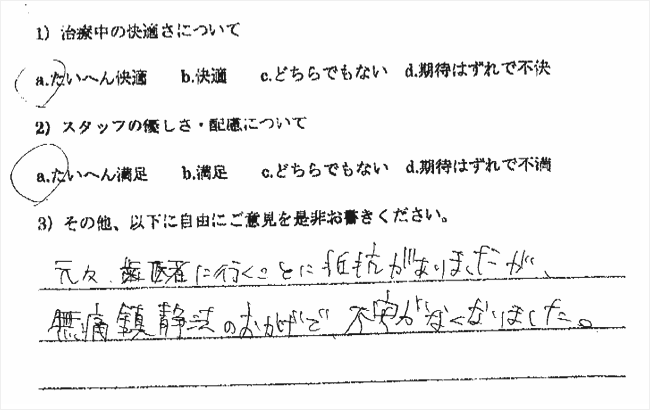 1) 治療中の快適さについて
a.たいへん快適 b.快適 c.どちらでもない d.期待はずれで不快
2) スタッフの優しさ・配慮について
a.たいへん満足 b.満足 c.どちらでもない d.期待はずれで不満
3) その他、以下に自由にご意見を是非お書きください。
元々、歯医者に行くことに抵抗がありましたが、
無痛鎮静法のおかげで、不安がなくなりました。